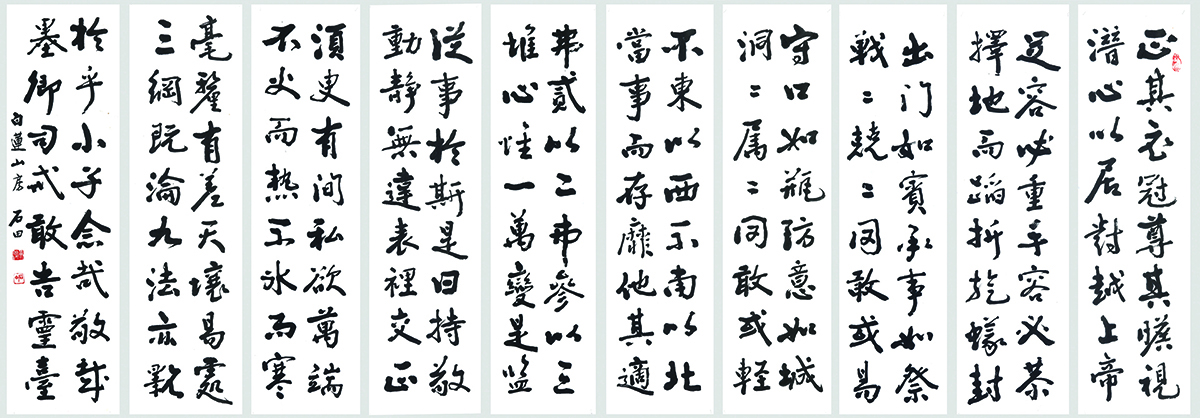 正其衣冠尊其瞻視
潛心以居對越上帝
足容必重手容必恭
擇地而蹈折旋蟻封
出门如賓承事如祭
戦〻兢〻罔敢或易
守口如瓶防意如城
洞〻属〻罔敢或軽
不東以西不南以北
當事而存靡他其適
弗貳以二弗參以三
惟心惟一萬變是監
從事於斯是曰持敬
動靜無違表裡交正
須臾有間私欲萬端
不火而熱不氷而寒
毫釐有差天壤易處
三綱既淪九法亦斁
於乎小子念哉敬哉
墨卿司戒敢告靈臺
白蓮山房 石田